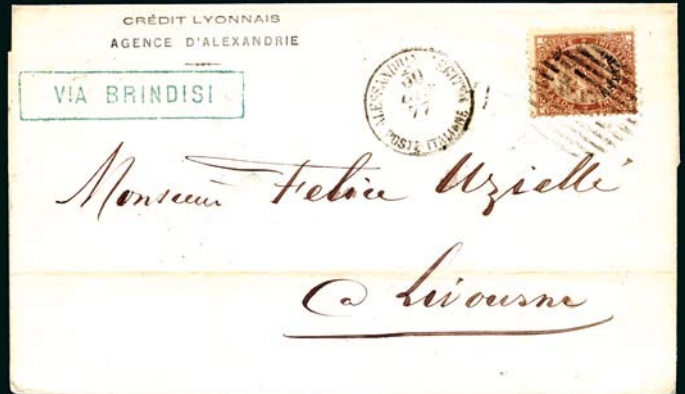 CRÉDIT LYONNAIS
AGENCE D'ALEXANDRIE
VIA BRINDISI
ALESSANDRIA
POSTE ITALIANE
77
Monsieur Felice Uzielli
a Livourne